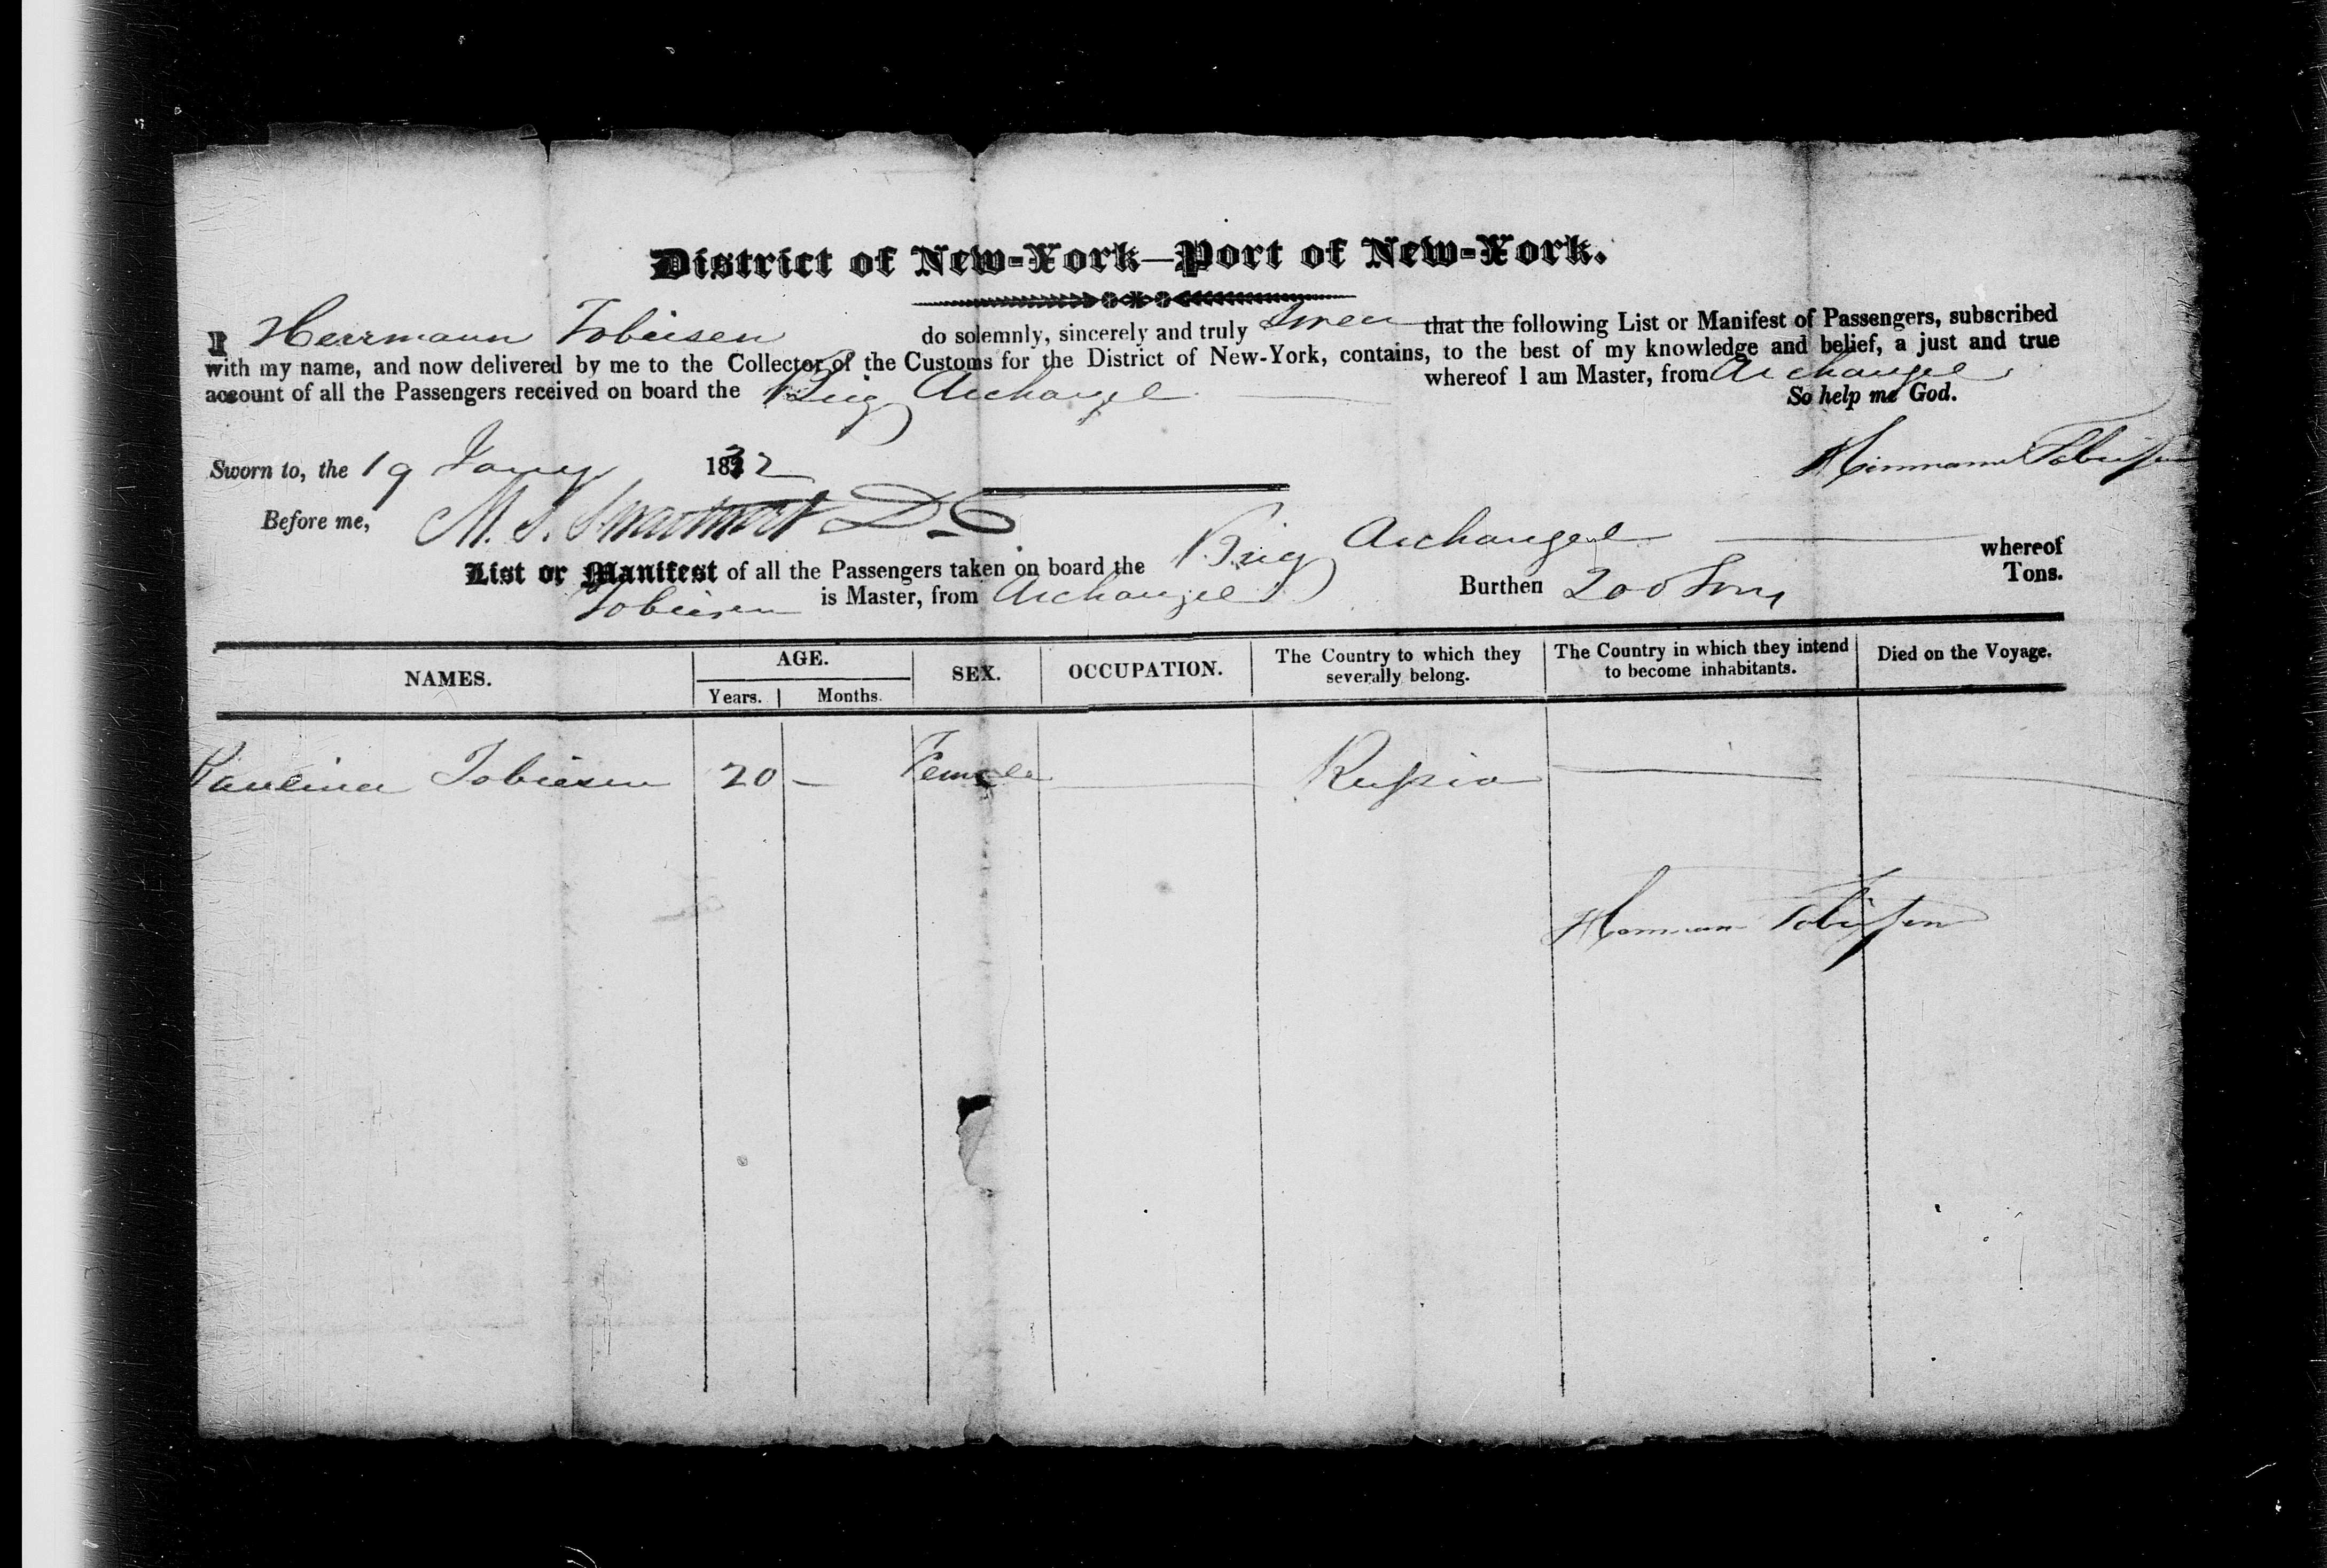 District of New-York—Port of New-York.
I Herrmann Tobiesen do solemnly, sincerely and truly Swear that the following List or Manifest of Passengers, subscribed
with my name, and now delivered by me to the Collector of the Customs for the District of New-York, contains, to the best of my knowledge and belief, a just and true
account of all the Passengers received on board the Brig Archangel whereof I am Master, from Archangel
So help me God.
Sworn to, the 19 Jany 1832
Herrmann Tobiesen
Before me, M. S. D C
List or Manifest of all the Passengers taken on board the Brig Archangel whereof
Tobiesen is Master, from Archangel Burthen 200 Tons Tons.
NAMES. AGE. SEX. OCCUPATION. The Country to which they severally belong. The Country in which they intend to become inhabitants. Died on the Voyage.
Years. Months.
Paulina Tobiesen 20 — Female — Russia — —
Hermann Tobiesen